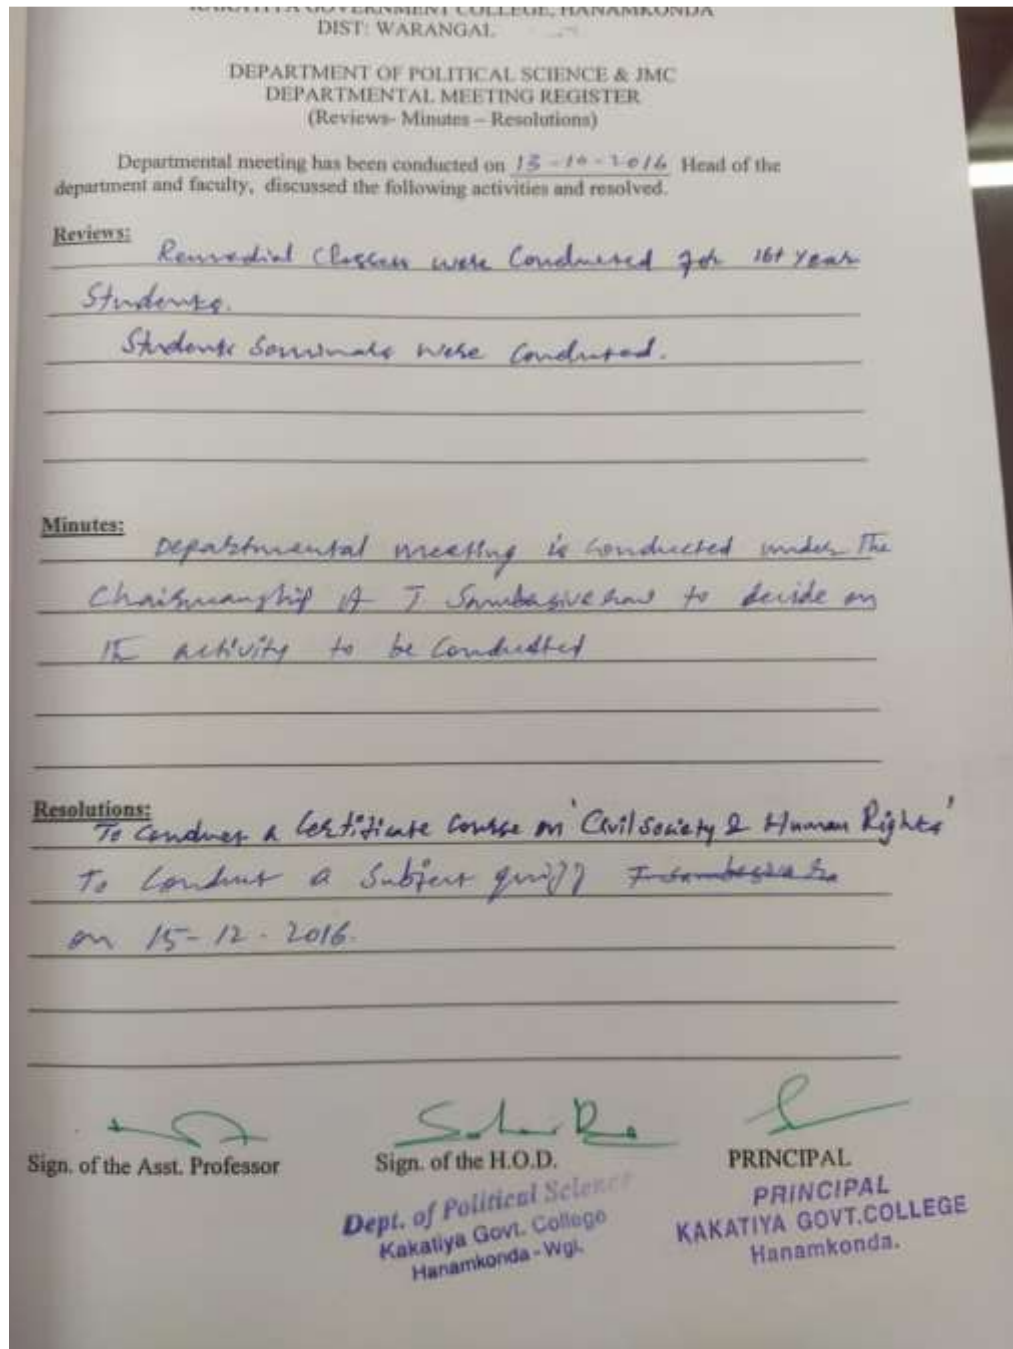 KAKATIYA GOVERNMENT COLLEGE, HANAMKONDA
DIST: WARANGAL
DEPARTMENT OF POLITICAL SCIENCE & JMC
DEPARTMENTAL MEETING REGISTER
(Reviews- Minutes – Resolutions)
Departmental meeting has been conducted on 13-10-2016 Head of the
department and faculty, discussed the following activities and resolved.
Reviews:
Remedial Classes were Conducted for 1st year
Students.
Students Seminars were Conducted.
Minutes:
Departmental meeting is conducted under The
Chairmanship of T Sambasiva Rao to decide on
The activity to be Conducted
Resolutions:
To Conduct a Certificate Course on 'Civil Society & Human Rights'
To Conduct a Subject quizz
on 15-12-2016.
Sign. of the Asst. Professor Sign. of the H.O.D. PRINCIPAL
Dept. of Political Science
Kakatiya Govt. College
Hanamkonda-Wgl.
PRINCIPAL
KAKATIYA GOVT.COLLEGE
Hanamkonda.